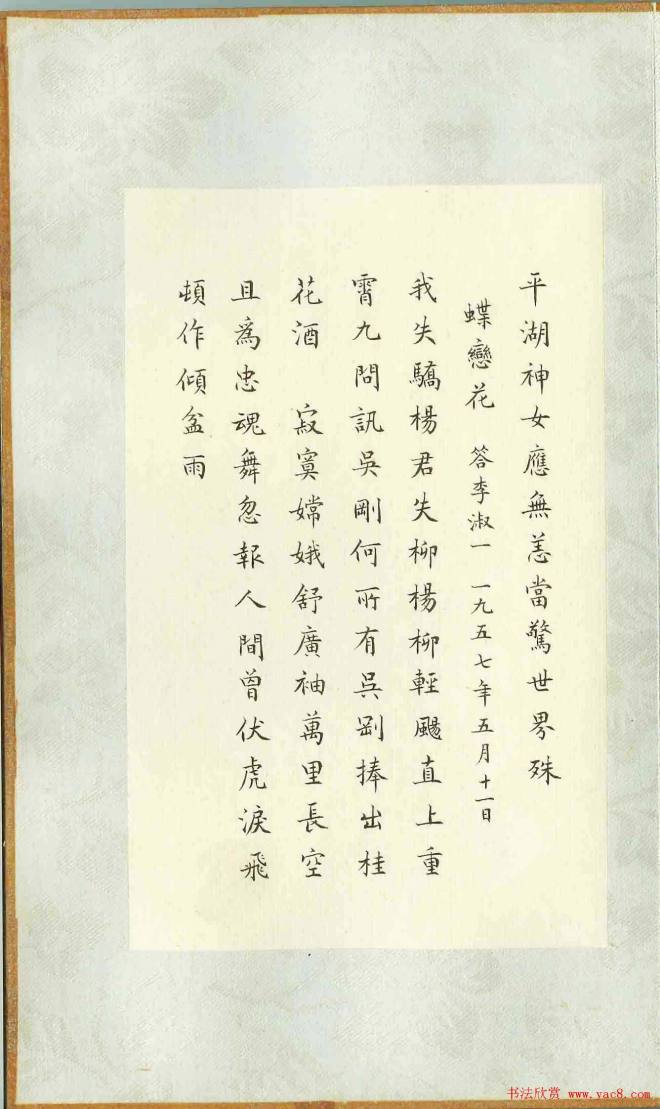 平湖神女應無恙當驚世界殊
蝶戀花 答李淑一 一九五七年五月十一日
我失驕楊君失柳楊柳輕颺直上重
霄九問訊吳剛何所有吳剛捧出桂
花酒 寂寞嫦娥舒廣袖萬里長空
且為忠魂舞忽報人間曾伏虎淚飛
頓作傾盆雨
书法欣赏 www.yac8.com